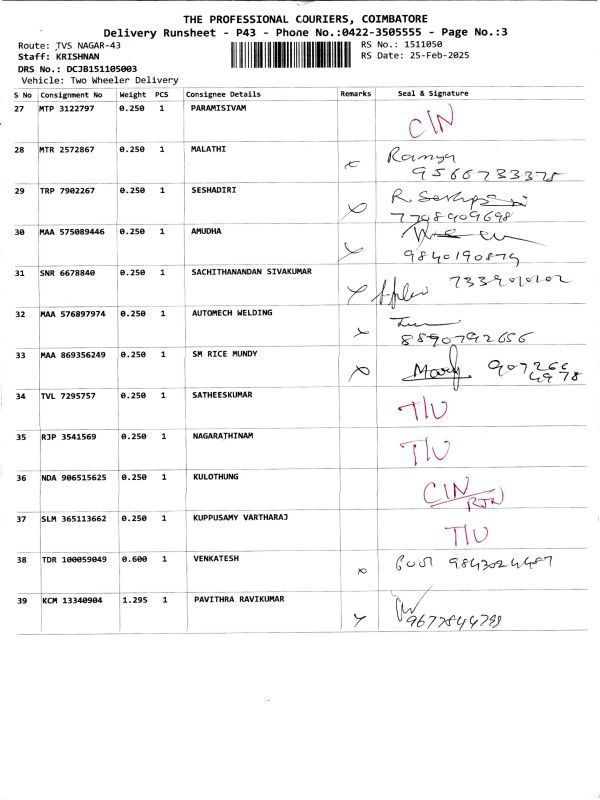 THE PROFESSIONAL COURIERS, COIMBATORE
Delivery Runsheet - P43 - Phone No.:0422-3505555 - Page No.:3
Route: TVS NAGAR-43 RS No.: 1511050
Staff: KRISHNAN RS Date: 25-Feb-2025
DRS No.: DCJB151105003
Vehicle: Two Wheeler Delivery
S No Consignment No Weight PCS Consignee Details Remarks Seal & Signature
27 MTP 3122797 0.250 1 PARAMISIVAM C/N
28 MTR 2572867 0.250 1 MALATHI Ramya
9566733375
29 TRP 7902267 0.250 1 SESHADIRI
7708409698
30 MAA 575089446 0.250 1 AMUDHA
9840190874
31 SNR 6678840 0.250 1 SACHITHANANDAN SIVAKUMAR
32 MAA 576897974 0.250 1 AUTOMECH WELDING
8890792656
33 MAA 869356249 0.250 1 SM RICE MUNDY Mary 907266
4978
34 TVL 7295757 0.250 1 SATHEESKUMAR T/U
35 RJP 3541569 0.250 1 NAGARATHINAM T/U
36 NDA 906515625 0.250 1 KULOTHUNG C/N
RTN
37 SLM 365113662 0.250 1 KUPPUSAMY VARTHARAJ T/U
38 TDR 100059049 0.600 1 VENKATESH 9843024487
39 KCM 13340904 1.295 1 PAVITHRA RAVIKUMAR
9677844799